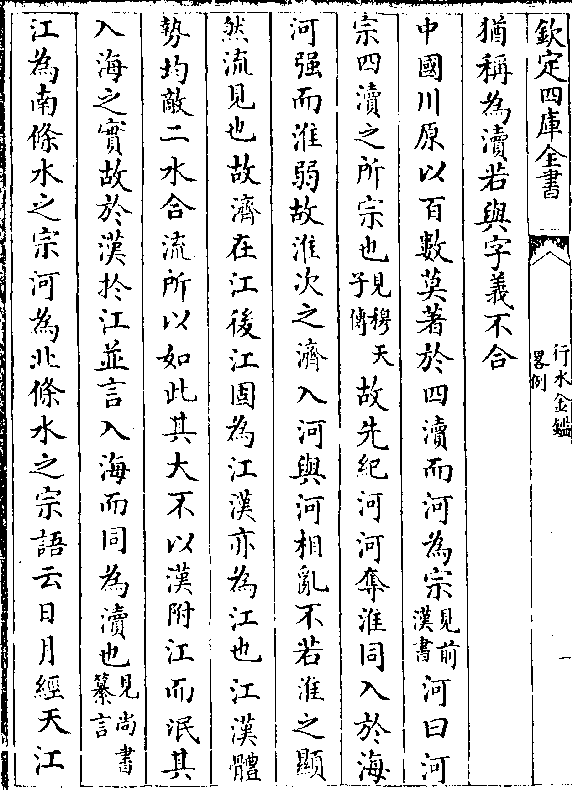 欽定四庫全書
行水金鑑
畧例
一
猶稱為瀆若與字義不合
中國川原以百數莫著於四瀆而河為宗見前漢書河曰河
宗四瀆之所宗也見穆天子傳故先紀河河奪淮同入於海
河强而淮弱故淮次之濟入河與河相亂不若淮之顯
然流見也故濟在江後江固為江漢亦為江也江漢體
勢均敵二水合流所以如此其大不以漢附江而泯其
入海之實故於漢於江並言入海而同為瀆也見尚書纂言
江為南條水之宗河為北條水之宗語云日月經天江